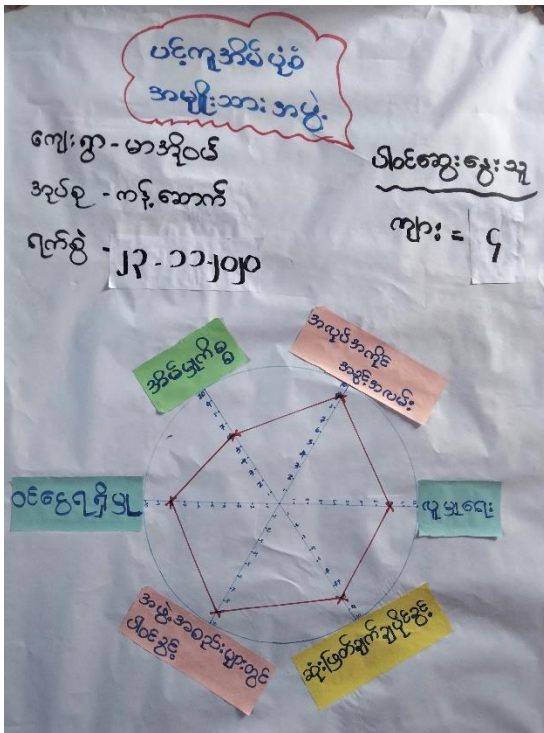 ပင့်ကူအိမ်ပုံစံ
အမျိုးသားအဖွဲ့
ကျေးရွာ - မာအိုဝမ်
အုပ်စု - ကန့်ဆောက်
ရက်စွဲ - ၂၃-၁၁-၂၀၂၀
ပါဝင်ဆွေးနွေးသူ
ကျား = ၄
အိမ်မှုကိစ္စ
အလုပ်အကိုင်
အခွင့်အလမ်း
ဝင်ငွေရရှိမှု
လူမှုရေး
အဖွဲ့အစည်းများတွင်
ပါဝင်ခွင့်
ဆုံးဖြတ်ချက်ချပိုင်ခွင့်